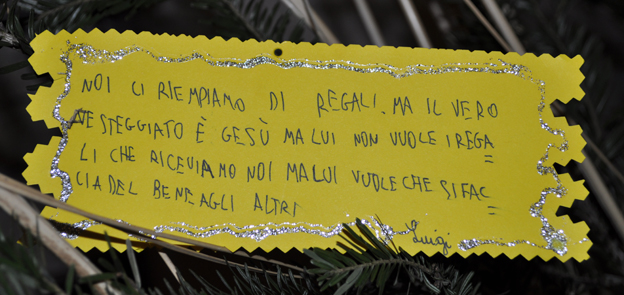 NOI CI RIEMPIAMO DI REGALI. MA IL VERO
FESTEGGIATO È GESÙ MA LUI NON VUOLE I REGA=
LI CHE RICEVIAMO NOI MA LUI VUOLE CHE SI FAC=
CIA DEL BENE AGLI ALTRI
Luigi